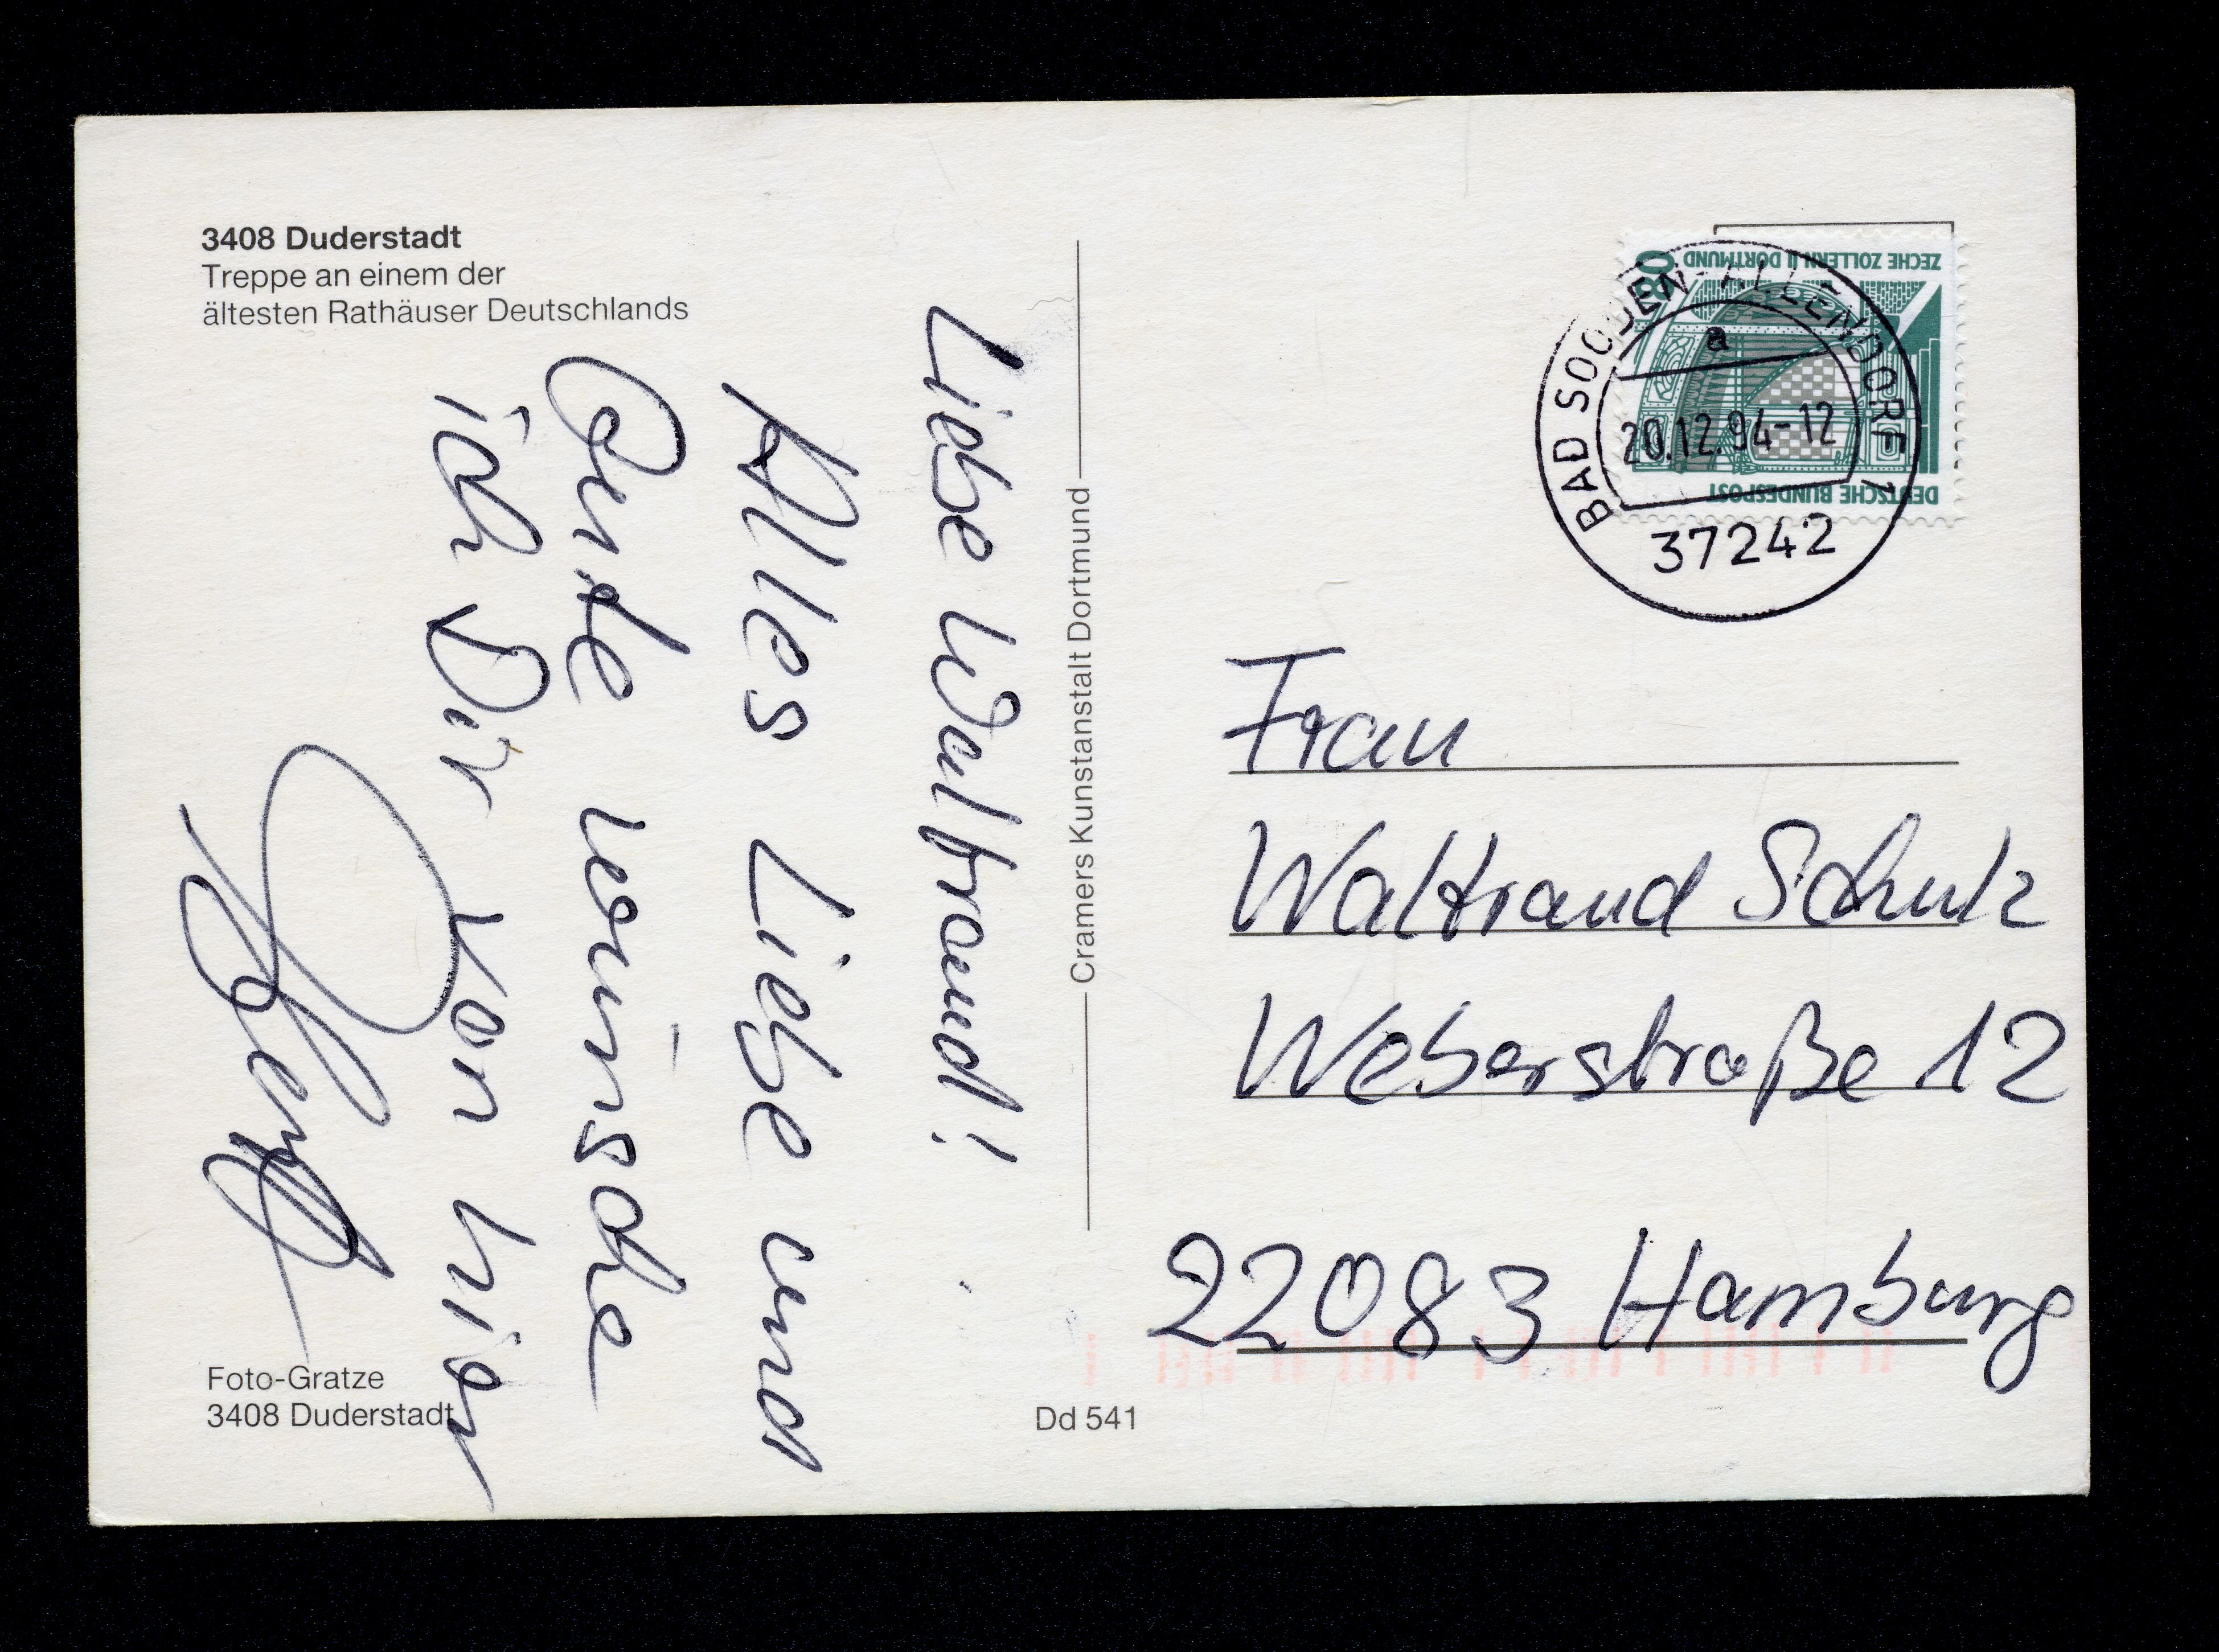 3408 Duderstadt
Treppe an einem der
ältesten Rathäuser Deutschlands
Liebe Waltraud!
Alles Liebe und
Gute wünsche
ich Dir von hier
Cramers Kunstanstalt Dortmund
Foto-Gratze
3408 Duderstadt
Dd 541
80
ZECHE ZOLLERN II DORTMUND
DEUTSCHE BUNDESPOST
BAD SOODEN-ALLENDORF 1
a
20.12.94-12
37242
Frau
Waltraud Schulz
Weberstraße 12
22083 Hamburg